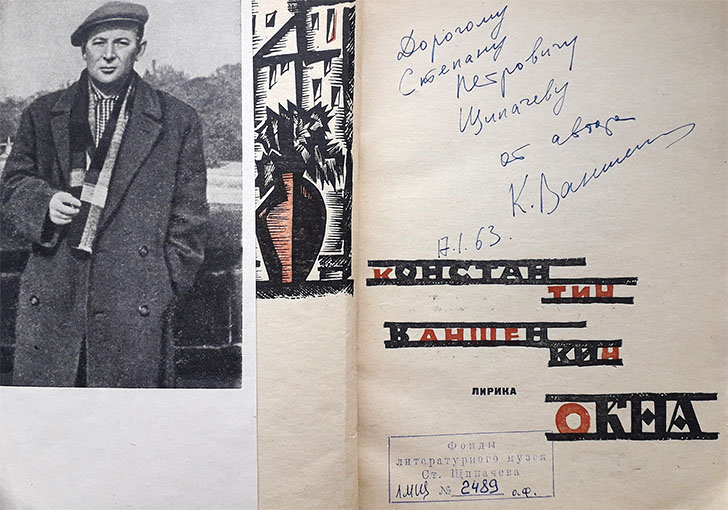 Дорогому
Степану
Петровичу
Щипачеву
от автора
К. Ваншенкин
17.1.63.
КОНСТАН
ТИН
ВАНШЕН
КИН
ЛИРИКА
ОКНА
Фонды
литературного музея
Ст. Щипачева
ЛМЩ № 2489 о.ф.